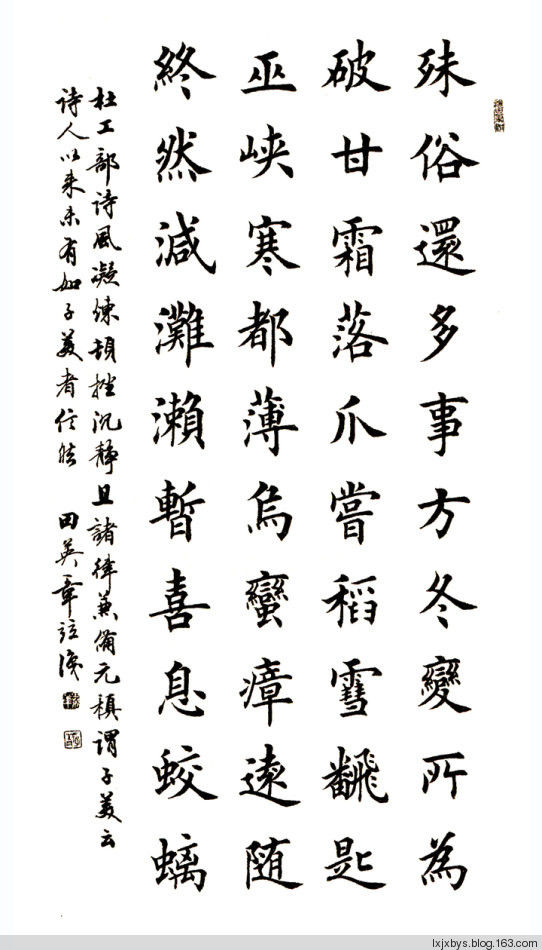 殊俗還多事方冬變所為
破甘霜落爪嘗稻雪飜匙
巫峡寒都薄烏蠻瘴遠随
終然減灘瀨暫喜息蛟螭
杜工部诗風凝煉頓挫沉静且諸律兼備元稹謂子美云
诗人以来未有如子美者信然 田英章
lxjxbys.blog.163.com